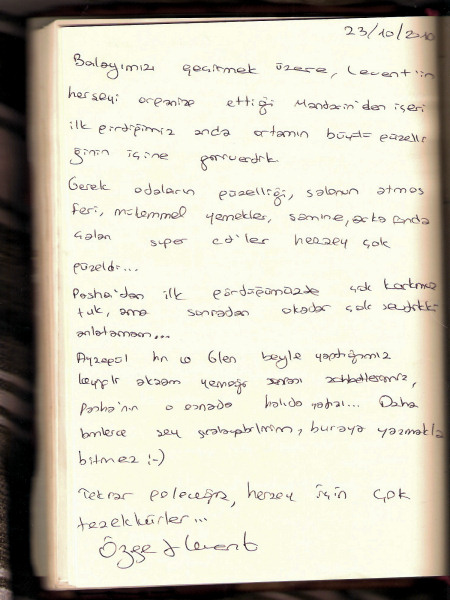 23/10/2010
Balayımızı geçirmek üzere, Levent'in
herşeyi organize ettiği Mandarin'den içeri
ilk girdiğimiz anda ortamın büyük güzelli
ğinin içine giriverdik
Gerek odaların güzelliği, salonun atmos
feri, mükemmel yemekler, şömine, arka fonda
çalan süper cd'ler herşey çok
güzeldi...
Pasha'dan ilk gördüğümüzde çok korkmuş
tuk, ama sonradan okadar çok sevdikki
anlatamam...
Ayşegül hn ve Glen beyle yaptığımız
keyifli akşam yemeği sonrası sohbetlerimiz,
Pasha'nın o esnada halıda yatışı... Daha
binlerce şey sıralayabilirim, buraya yazmakla
bitmez :-)
Tekrar geleceğiz, herşey için çok
teşekkürler...
Özge & Levent